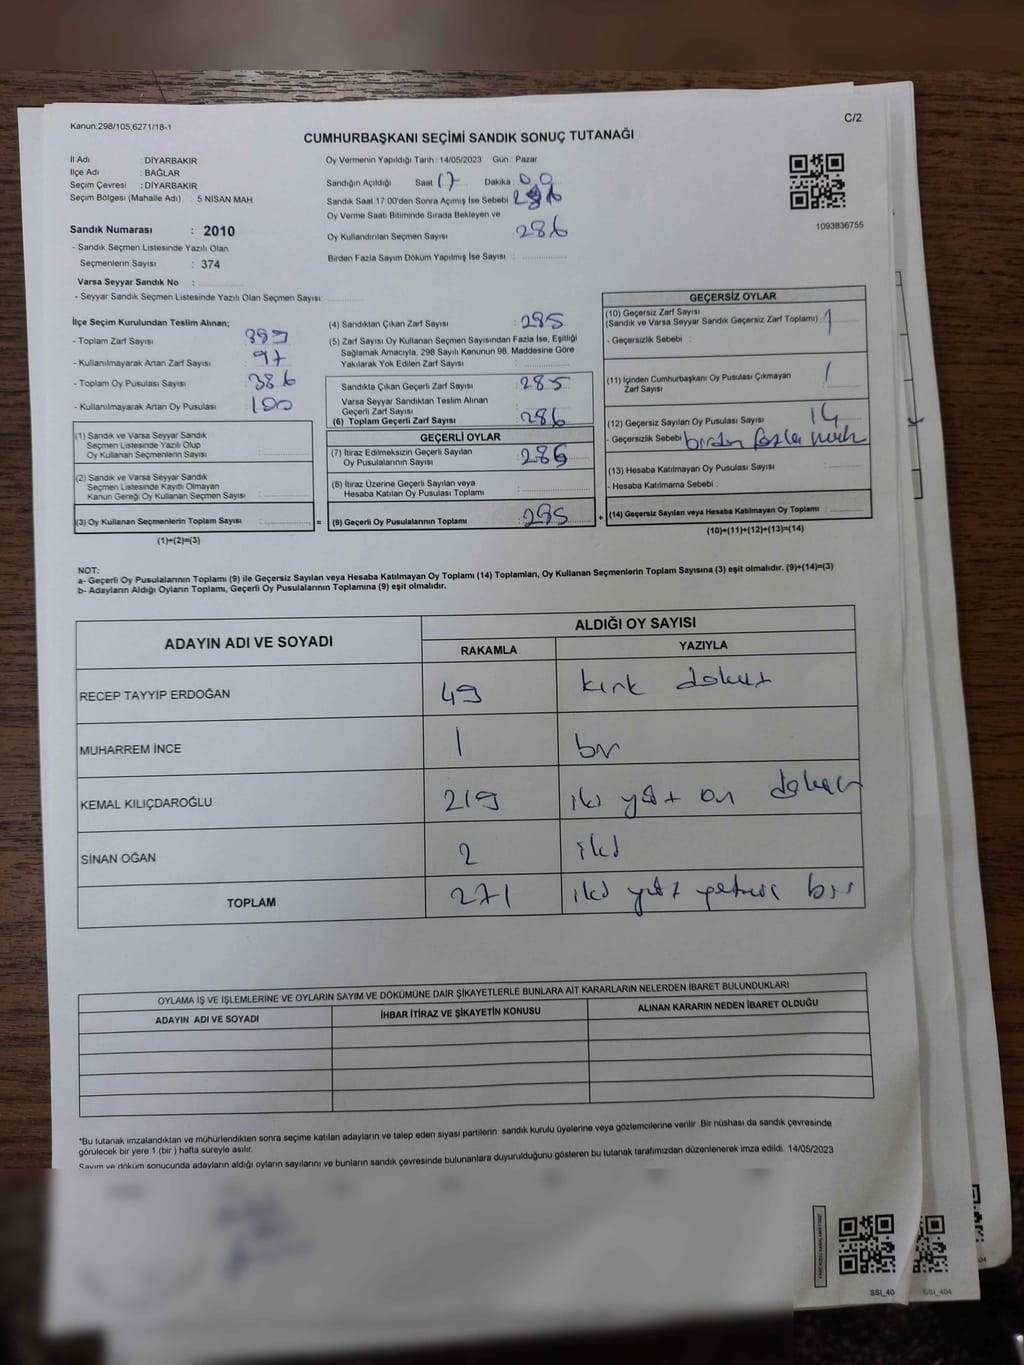 Kanun:298/105,6271/18-1
C/2
CUMHURBAŞKANI SEÇİMİ SANDIK SONUÇ TUTANAĞI
İl Adı : DİYARBAKIR
İlçe Adı : BAĞLAR
Seçim Çevresi : DİYARBAKIR
Seçim Bölgesi (Mahalle Adı) : 5 NİSAN MAH.
Sandık Numarası : 2010
- Sandık Seçmen Listesinde Yazılı Olan
Seçmenlerin Sayısı : 374
Varsa Seyyar Sandık No :
- Seyyar Sandık Seçmen Listesinde Yazılı Olan Seçmen Sayısı:
Oy Vermenin Yapıldığı Tarih :14/05/2023 Gün : Pazar
Sandığın Açıldığı Saat 17 Dakika : 00
Sandık Saat 17:00'den Sonra Açımış İse Sebebi
Oy Verme Saati Bitiminde Sırada Bekleyen ve
Oy Kullandırılan Seçmen Sayısı : 286
Birden Fazla Sayım Döküm Yapılmış İse Sayısı :
1093836755
İlçe Seçim Kurulundan Teslim Alınan;
- Toplam Zarf Sayısı : 399
- Kullanılmayarak Artan Zarf Sayısı : 97
- Toplam Oy Pusulası Sayısı : 386
- Kullanılmayarak Artan Oy Pusulası : 100
(1) Sandık ve Varsa Seyyar Sandık
Seçmen Listesinde Yazılı Olup
Oy Kullanan Seçmenlerin Sayısı :
(2) Sandık ve Varsa Seyyar Sandık
Seçmen Listesinde Kayıtlı Olmayan
Kanun Gereği Oy Kullanan Seçmen Sayısı :
(3) Oy Kullanan Seçmenlerin Toplam Sayısı : =
(1)+(2)=(3)
(4) Sandıktan Çıkan Zarf Sayısı : 285
(5) Zarf Sayısı Oy Kullanan Seçmen Sayısından Fazla İse, Eşitliği
Sağlamak Amacıyla, 298 Sayılı Kanunun 98. Maddesine Göre
Yakılarak Yok Edilen Zarf Sayısı :
Sandıkta Çıkan Geçerli Zarf Sayısı : 285
Varsa Seyyar Sandıktan Teslim Alınan
Geçerli Zarf Sayısı :
(6) Toplam Geçerli Zarf Sayısı : 286
GEÇERLİ OYLAR
(7) İtiraz Edilmeksizin Geçerli Sayılan
Oy Pusulalarının Sayısı :
(8) İtiraz Üzerine Geçerli Sayılan veya
Hesaba Katılan Oy Pusulası Toplamı :
(9) Geçerli Oy Pusulalarının Toplamı : 285 +
GEÇERSİZ OYLAR
(10) Geçersiz Zarf Sayısı
(Sandık ve Varsa Seyyar Sandık Geçersiz Zarf Toplamı) : 1
- Geçersizlik Sebebi :
(11) İçinden Cumhurbaşkanı Oy Pusulası Çıkmayan
Zarf Sayısı : 1
(12) Geçersiz Sayılan Oy Pusulası Sayısı : 14
- Geçersizlik Sebebi : birden fazla mühür
(13) Hesaba Katılmayan Oy Pusulası Sayısı :
- Hesaba Katılmama Sebebi :
(14) Geçersiz Sayılan veya Hesaba Katılmayan Oy Toplamı :
(10)+(11)+(12)+(13)=(14)
NOT:
a- Geçerli Oy Pusulalarının Toplamı (9) ile Geçersiz Sayılan veya Hesaba Katılmayan Oy Toplamı (14) Toplamları, Oy Kullanan Seçmenlerin Toplam Sayısına (3) eşit olmalıdır. (9)+(14)=(3)
b- Adayların Aldığı Oyların Toplamı, Geçerli Oy Pusulalarının Toplamına (9) eşit olmalıdır.
ADAYIN ADI VE SOYADI
ALDIĞI OY SAYISI
RAKAMLA YAZIYLA
RECEP TAYYİP ERDOĞAN 49 kırk dokuz
MUHARREM İNCE 1 bir
KEMAL KILIÇDAROĞLU 219 iki yüz on dokuz
SİNAN OĞAN 2 iki
TOPLAM 271 iki yüz yetmiş bir
OYLAMA İŞ VE İŞLEMLERİNE VE OYLARIN SAYIM VE DÖKÜMÜNE DAİR ŞİKAYETLERLE BUNLARA AİT KARARLARIN NELERDEN İBARET BULUNDUKLARI
ADAYIN ADI VE SOYADI İHBAR İTİRAZ VE ŞİKAYETİN KONUSU ALINAN KARARIN NEDEN İBARET OLDUĞU
*Bu tutanak imzalandıktan ve mühürlendikten sonra seçime katılan adayların ve talep eden siyasi partilerin sandık kurulu üyelerine veya gözlemcilerine verilir. Bir nüshası da sandık çevresinde
görülecek bir yere 1 (bir ) hafta süreyle asılır.
Sayım ve döküm sonucunda adayların aldığı oyların sayılarını ve bunların sandık çevresinde bulunanlara duyurulduğunu gösteren bu tutanak tarafımızdan düzenlenerek imza edildi. 14/05/2023
SSİ_40
SSİ_404